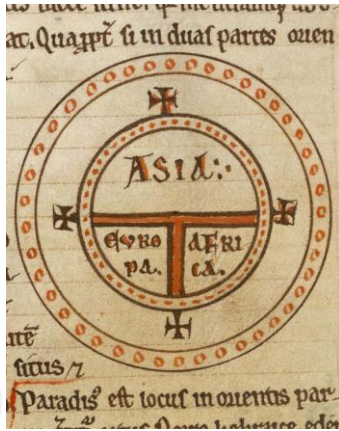 at. Quapp̄t si in duas partes orien
ASIA:·
EVRO
PA.
AFRI
CA.
itē
situs
Paradis᷒ est locus in orientis par